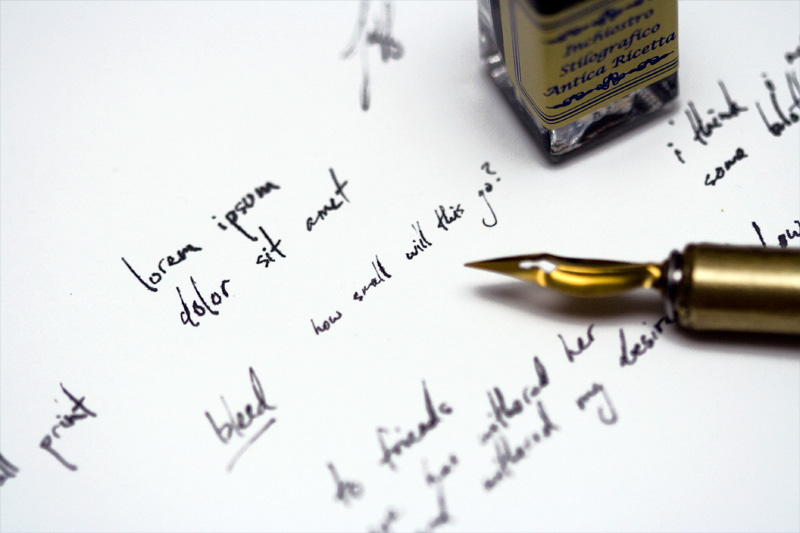 Inchiostro
Stilografico
Antica Ricetta
i think i
some
lorem ipsum
dolor sit amet
how small will this go?
print
bleed
to friends
has withered her
withered my desire